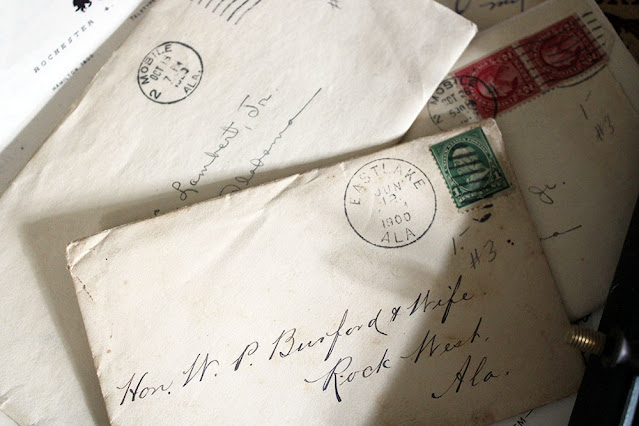 ROCHESTER
MOBILE
OCT
2
ALA.
Lambert, Jr.
Alabama
MOBILE
OCT
2
1-
#3
Jr.
EASTLAKE
JUN
1900
ALA
1.-
#3.
Hon. W. P. Burford & Wife.
Rock West.
Ala.